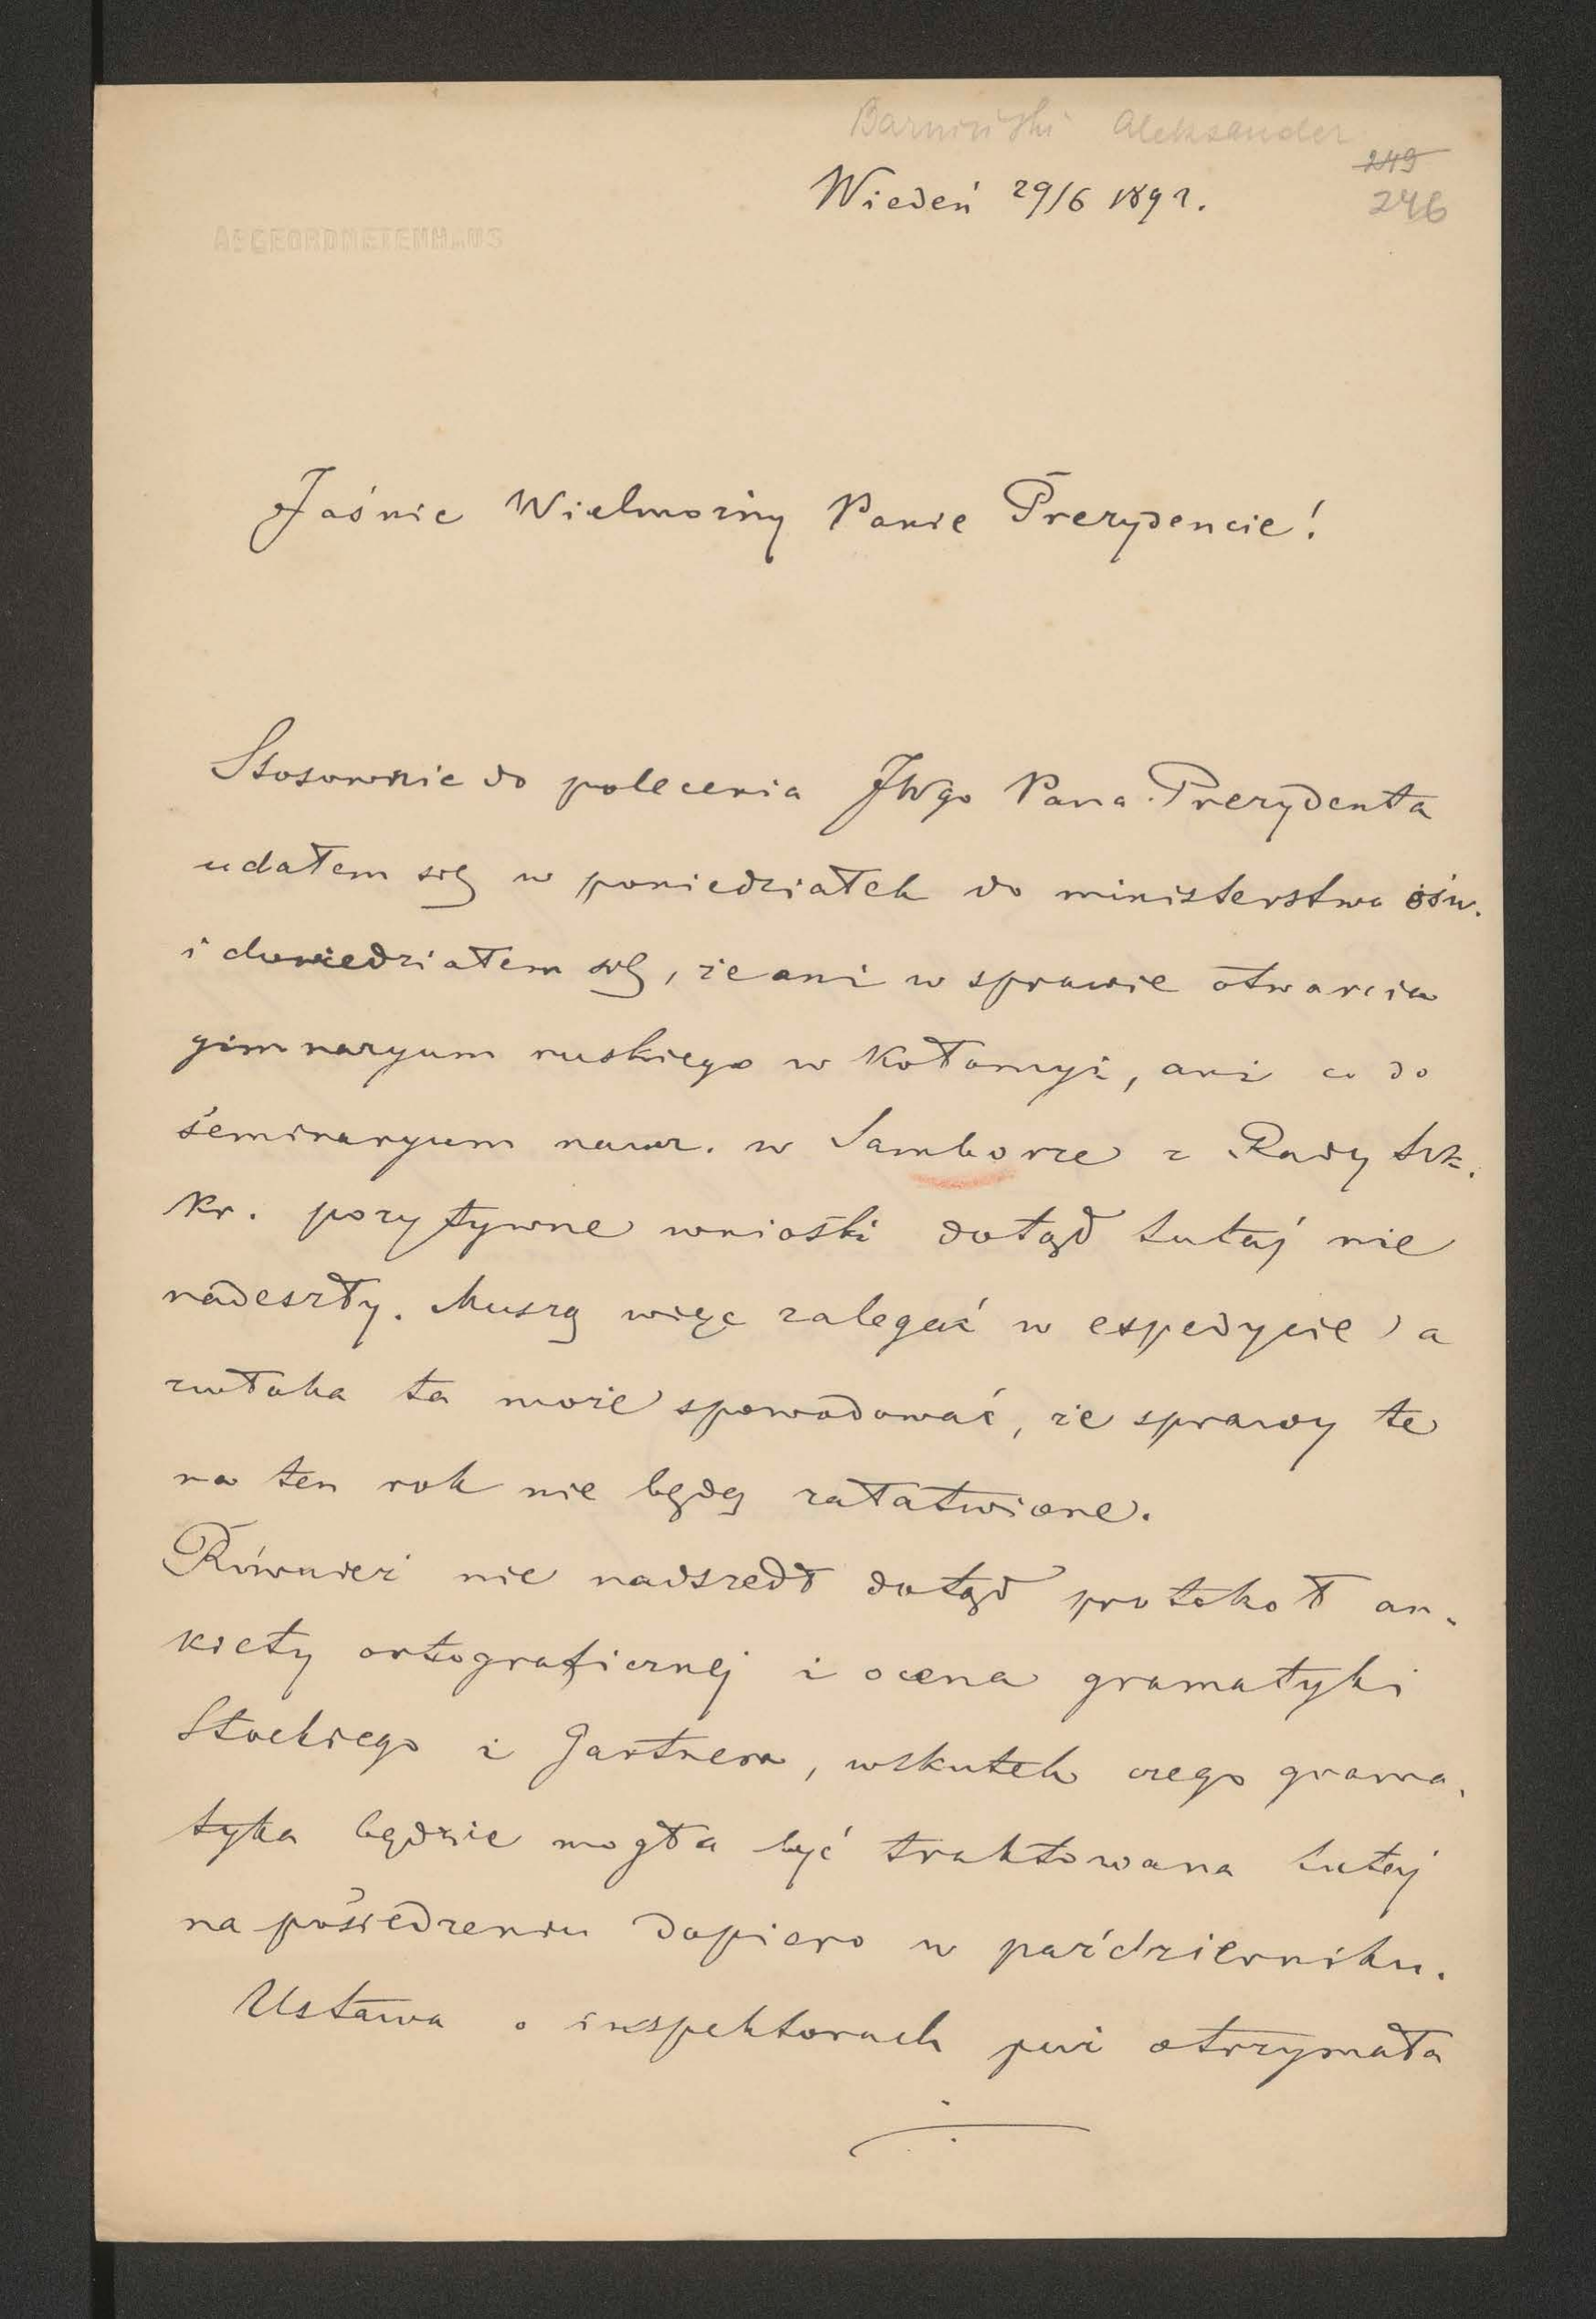 Barwiński Aleksander
249
Wiedeń 29/6 1892.
246
ABGEORDNETENHAUS
Jaśnie Wielmożny Panie Prezydencie!
Stosownie do polecenia JWgo Pana Prezydenta
udałem się w poniedziałek do ministerstwa ośw.
i dowiedziałem się, że ani w sprawie otwarcia
gimnazyum ruskiego w Kołomyi, ani co do
seminaryum naucz. w Samborze z Rady szk.
kr. pozytywne wnioski dotąd tutaj nie
nadeszły. Muszą więc zalegać w espedycie, a
zwłoka ta może spowodować, że sprawy te
na ten rok nie będą załatwione.
Również nie nadszedł dotąd protokół an-
kiety ortograficznej i ocena gramatyki
Stockiego i Gartnera, wskutek czego grama-
tyka będzie mogła być traktowana tutaj
na posiedzeniu dopiero w październiku.
Ustawa o inspektorach już otrzymała